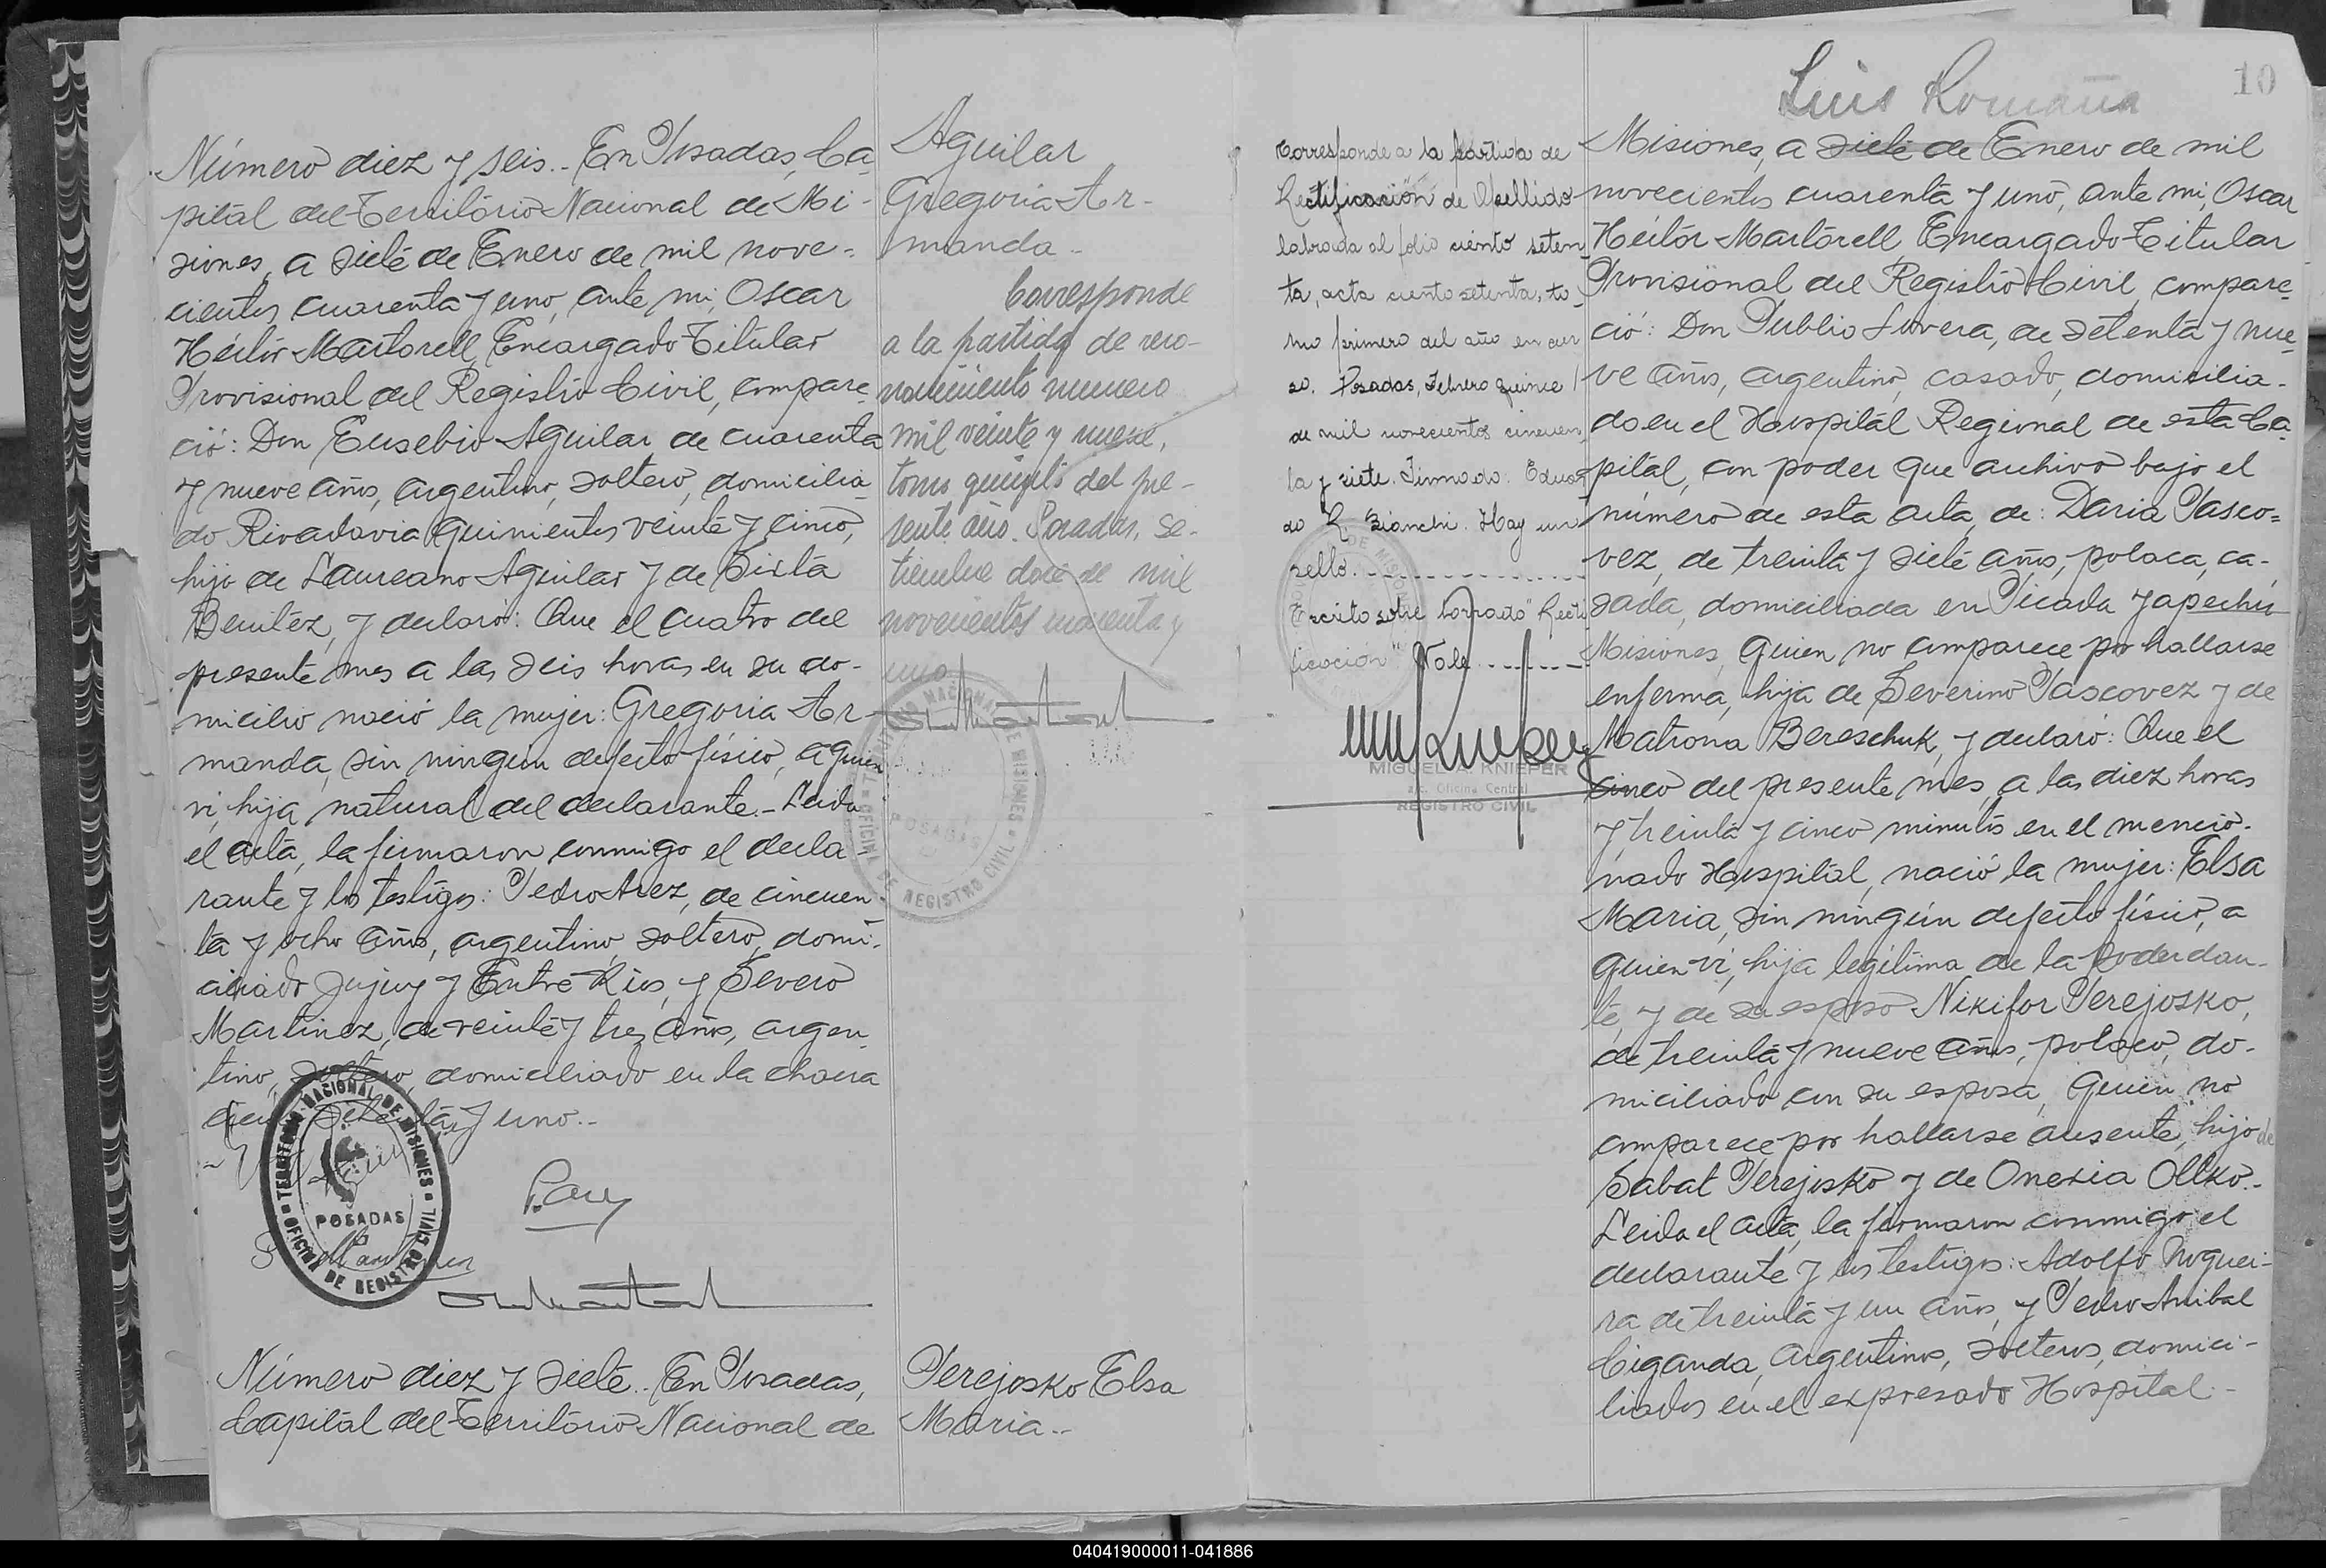 Número diez y seis.- En Posadas, Ca-
pital del Territorio Nacional de Mi-
siones, a siete de Enero de mil nove-
cientos cuarenta y uno, ante mi, Oscar
Héctor Martorell, Encargado Titular
Provisional del Registro Civil, compare-
ció: Don Eusebio Aguilar de cuarenta
y nueve años, argentino, soltero, domicilia-
do Rivadavia quinientos veinte y cinco,
hijo de Laureano Aguilar y de Sixta
Benitez, y declaró: Que el cuatro del
presente mes a las seis horas en su do-
micilio nació la mujer: Gregoria Ar-
manda, sin ningún defecto físico, a quien
vi, hija natural del declarante.- Leida
el acta, la firmaron conmigo el decla-
rante y los testigos: Pedro Arez, de cincuen-
ta y ocho años, argentino, soltero, domi-
ciliado Jujuy y Entre Rios, y Severo
Martinez, de veinte y tres años, argen-
tino, soltero, domiciliado en la chacra
ciento setenta y uno.-
TERRITORIO NACIONAL DE MISIONES
POSADAS
OFICINA DE REGISTRO CIVIL
Número diez y siete.- En Posadas,
Capital del Territorio Nacional de
Aguilar
Gregoria Ar-
manda.-
Corresponde
a la partida de reco-
nocimiento numero
mil veinte y nueve,
tomo quinto del pre-
sente año. Posadas, Se-
tiembre doce de mil
novecientos cuarenta y
uno.
TERRITORIO NACIONAL DE MISIONES
POSADAS
OFICINA DE REGISTRO CIVIL
Perejosko Elsa
Maria.-
Corresponde a la partida de
Rectificación de Apellido
labrada al folio ciento seten-
ta, acta ciento setenta, to-
mo primero del año en cur-
so. Posadas, Febrero quince
de mil novecientos cincuen-
ta y siete. Firmado: Eduar-
do R. Bianchi. Hay un
sello.
Escrito sobre borrado "Recti-
ficación" Vale.
MIGUEL A. KNIEPER
a/c. Oficina Central
REGISTRO CIVIL
Luis Romaña
10
Misiones, a siete de Enero de mil
novecientos cuarenta y uno, ante mi, Oscar
Héctor Martorell, Encargado Titular
Provisional del Registro Civil, compare-
ció: Don Publio Lovera, de setenta y nue-
ve años, argentino, casado, domicilia-
do en el Hospital Regional de esta Ca-
pital, con poder que archivo bajo el
número de esta acta, de: Daria Pasco-
vez, de treinta y siete años, polaca, ca-
sada, domiciliada en Picada Yapeyú
Misiones, quien no comparece por hallarse
enferma, hija de Severino Pascovez y de
Matrona Bereschuk, y declaró: Que el
cinco del presente mes, a las diez horas
y treinta y cinco minutos en el mencio-
nado Hospital, nació la mujer: Elsa
Maria, sin ningún defecto físico, a
quien vi, hija legítima de la poderdan-
te, y de su esposo Nikifor Perejosko,
de treinta y nueve años, polaco, do-
miciliado con su esposa, quien no
comparece por hallarse ausente, hijo de
Sabat Perejosko y de Onexia Olkko.-
Leida el acta, la firmaron conmigo el
declarante y los testigos: Adolfo Noguei-
ra de treinta y un años, y Pedro Anibal
Ciganda, argentinos, solteros, domici-
liados en el expresado Hospital.-
040419000011-041886